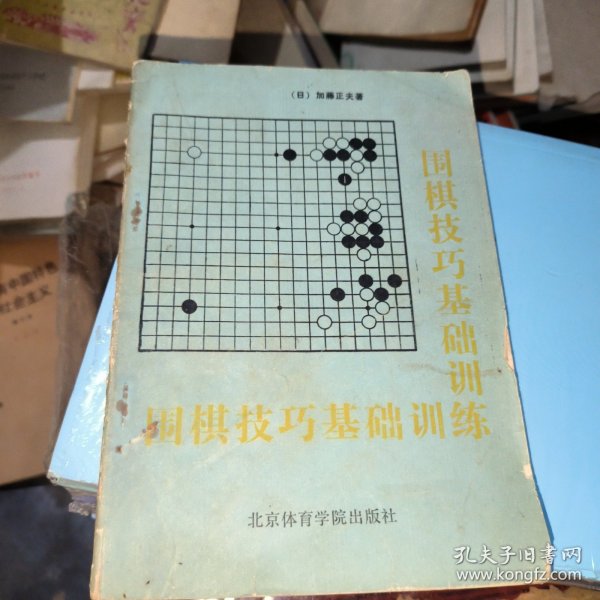 （日）加藤正夫著
围棋技巧基础训练
围棋技巧基础训练
北京体育学院出版社
社会主义
孔夫子旧书网
www.kongfz.com